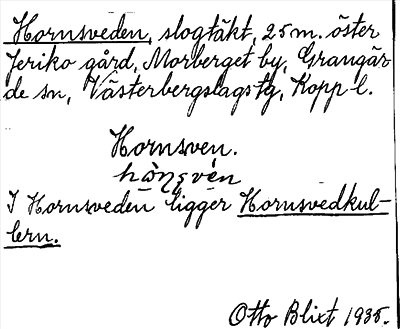 Hornsveden, slogtäkt, 25 m. öster
Jeriko gård, Morberget by, Grangär-
de sn, Västerbergslags tg, Kopp l.
Hornsven.
I Hornsveden ligger Hornsvedkul-
lern.
Otto Blixt 1935.